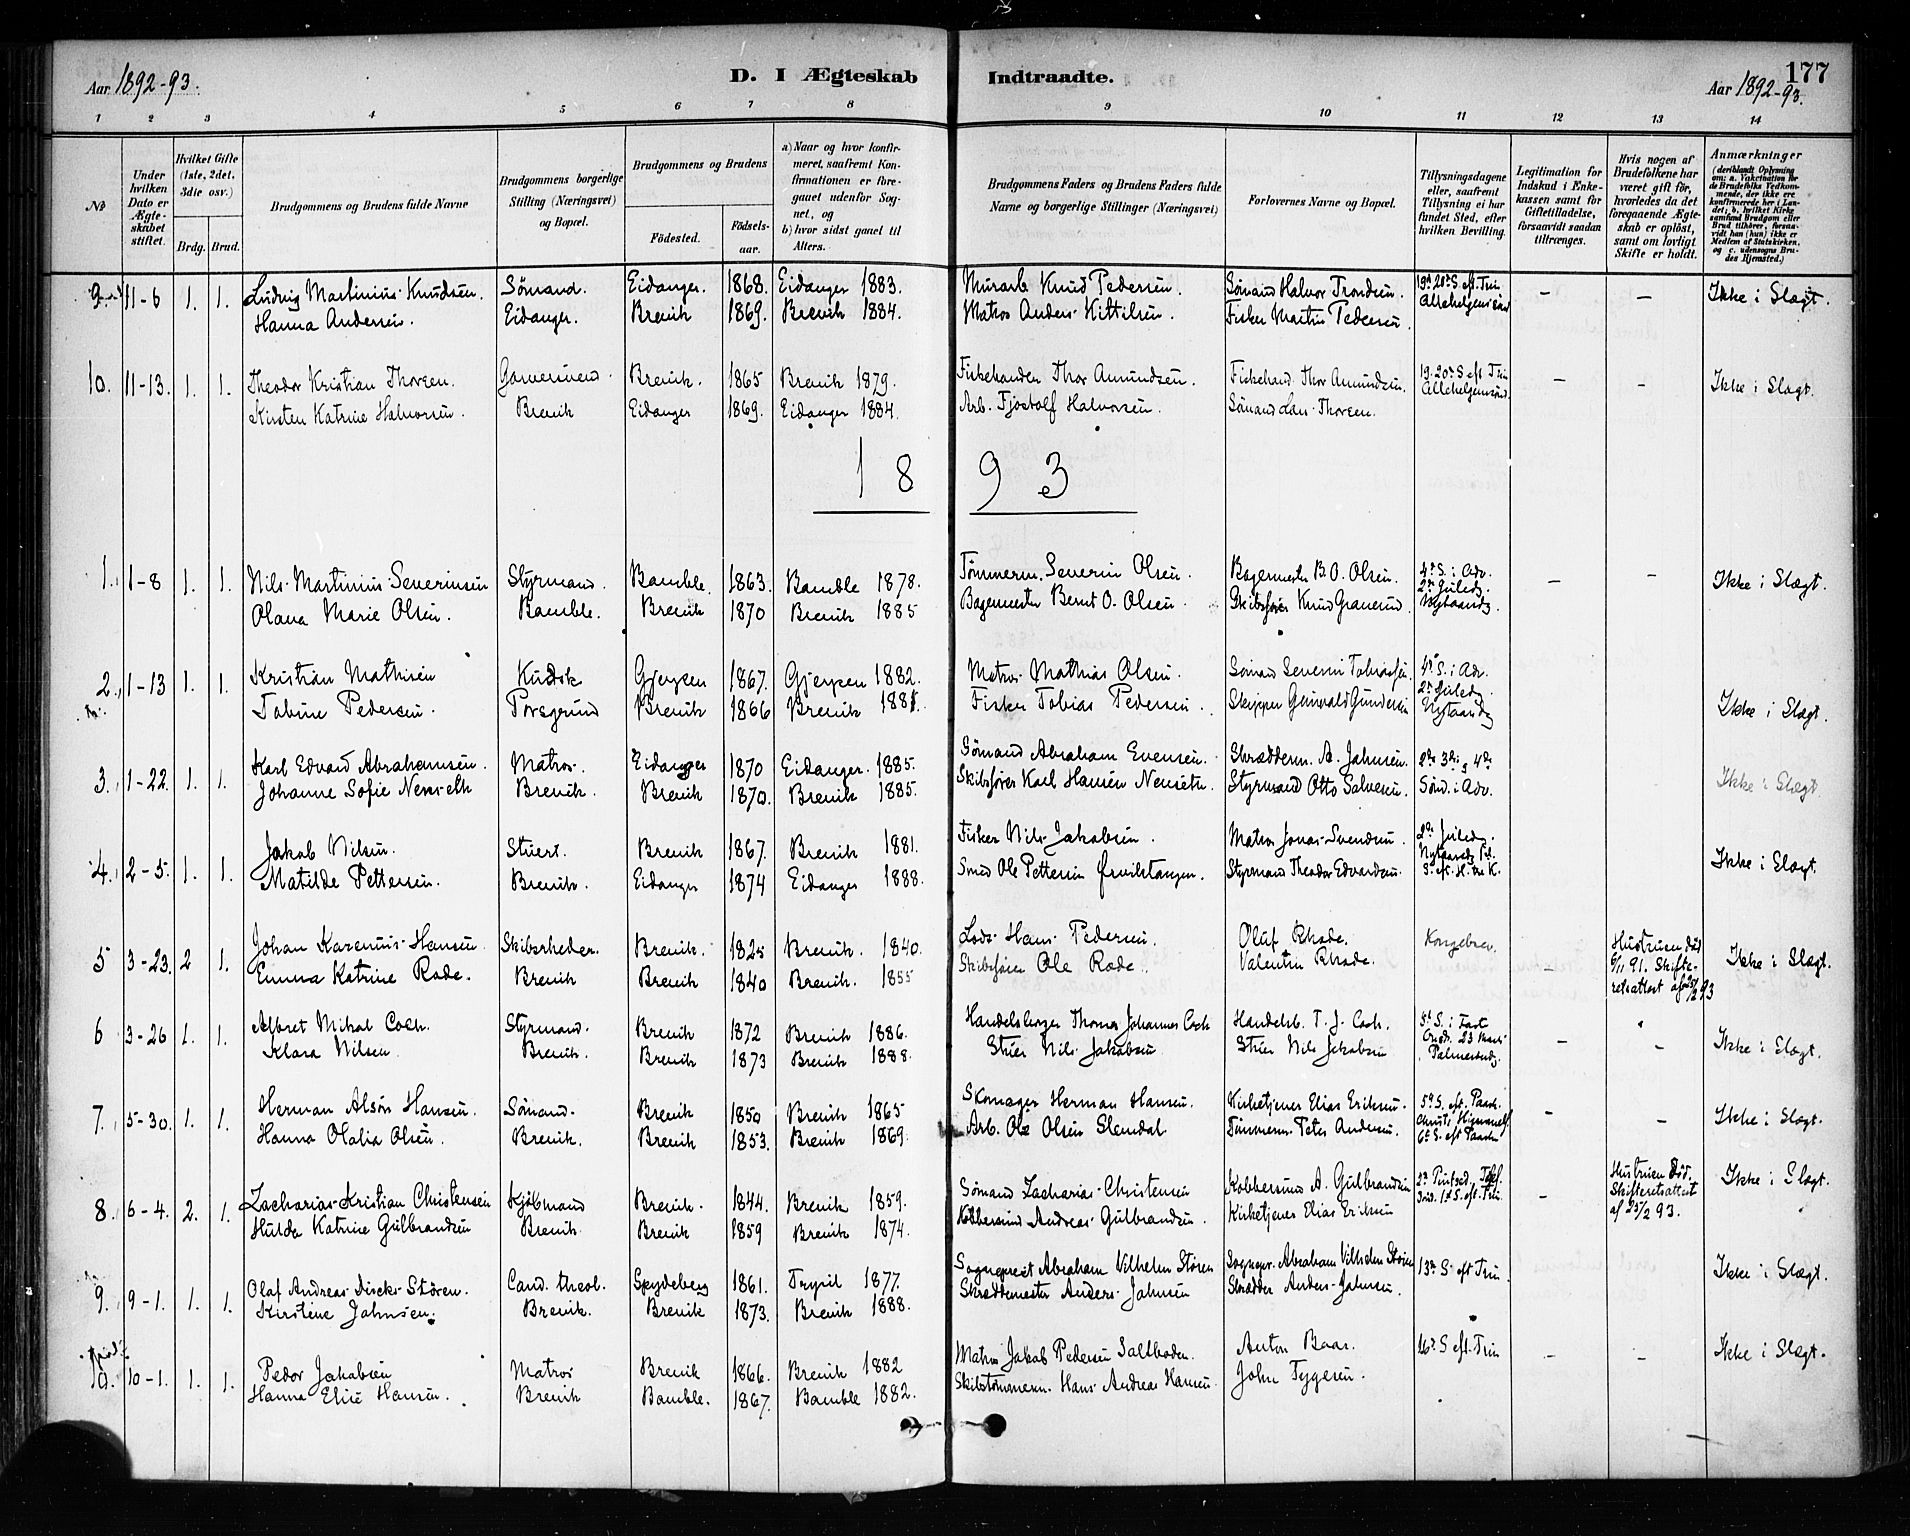 177
Aar 1892-93.
D. I Ægteskab Indtraadte.
Aar 1892-93.
1 2 3 4 5 6 7 8 9 10 11 12 13 14
No
Under hvilken Dato er Ægteskabet stiftet.
Hvilket Gifte (1ste, 2det, 3die osv.)
Brdg. Brud.
Brudgommens og Brudens fulde Navne
Brudgommens borgerlige Stilling (Næringsvei) og Bopæl.
Brudgommens og Brudens
Fødested. Fødselsaar.
a) Naar og hvor konfirmeret, saafremt Konfirmationen er foregaaet udenfor Sognet, og
b) hvor sidst gaaet til Alters.
Brudgommens Faders og Brudens Faders fulde Navne og borgerlige Stillinger (Næringsvei)
Forlovernes Navne og Bopæl.
Tillysningsdagene eller, saafremt Tillysning ei har fundet Sted, efter hvilken Bevilling.
Legitimation for Indskud i Enkekassen samt for Giftetilladelse, forsaavidt saadan tiltrænges.
Hvis nogen af Brudefolkene har været gift før, hvorledes da det foregaaende Ægteskab er opløst, samt om lovligt Skifte er holdt.
Anmærkninger
(deriblandt Oplysning om: a. Vakcination for de Brudefolks Vedkommende, der ikke ere konfirmerede her i Landet; b. hvilket Kirkesamfund Brudgom eller Brud tilhører, forsaavidt han (hun) ikke er Medlem af Statskirken, og c. udensogns Brudes Hjemsted.)
9. 11-6 1. 1. Ludvig Martinius Knudsen. Sømand. Eidanger. 1868. Eidanger 1883. Murarb. Knud Pedersen. Sømand Halvor Trondsen. 19de 20de S. eft. Trin — — Ikke i Slægt.
Hanna Andersen. Eidanger. Brevik 1869. Brevik 1884. Matros Anders Kittilsen. Fisker Martin Pedersen. Allehelgensønd
10. 11-13. 1. 1. Theodor Kristian Thorsen. Brevik. 1865 Brevik 1879. Fiskehandler Thor Amundsen. Fiskehand. Thor Amundsen. 19. 20de S eft Trin — — Ikke i Slægt.
Kirsten Katrine Halvorsen. Brevik Eidanger 1869. Eidanger 1884. Arb. Fjostolf Halvorsen. Sømand Lars Thorsen. Allehelgensønd.
1893
1. 1-8 1. 1. Nils Martinius Severinsen Styrmand. Bamble. 1863. Bamble 1878. Tømmerm. Severin Olsen. Bagermester B. O. Olsen. 4de S. i Adv. — — Ikke i Slægt.
Olava Marie Olsen. Bamble. Brevik 1870 Brevik 1885 Bagermester Bernt O. Olsen. Skibsfører Knud Graverund. 2den Juledg. Nytaarsdg.
2. 1-13 1. 1. Kristian Mathisen Kudsk Gjerpen 1867. Gjerpen 1882. Matros Mathias Olsen. Sømand Severin Tobiassen. 4de S. i Adv.
Tobine Pedersen. Porsgrund Brevik 1866 Brevik 1881. Fisker Tobias Pedersen. Skipper Gunvald Gundersen 2den Juledg. Nytaarsdg Ikke i Slægt.
3. 1-22. 1. 1. Karl Edvard Abrahamsen. Matros. Eidanger 1870 Eidanger. 1885. Sømand Abraham Evensen. Skrædderm. A. Jahnsen. 2den 3die og 4de Ikke i Slægt.
Johanne Sofie Nenseth Brevik. Brevik 1870. Brevik 1885. Skibsfører Karl Hansen Nenseth. Styrmand Otto Salvesen. Sønd. i Adv.
4. 2-5. 1. 1. Jakob Nilsen. Stuert. Brevik 1867. Brevik 1881. Fisker Nils Jakobsen. Matros Jonas Svendsen. 2den Juledg. Ikke i Slægt.
Matilde Pettersen. Brevik. Eidanger 1874 Eidanger 1888. Smed Ole Pettersen Ørvikstangen. Styrmand Theodor Edvardsen. Nytaarsdg S. eft. H. tre K.
5 3-23. 2 1. Johan Hansen Skibsrheder. Brevik. 1825 Brevik. 1840. Lods Hans Pedersen. Oluf Rhode. Kongebrev. Hustruen død 6/11 91. Skifteretsattest af 25/2 93 Ikke i Slægt.
Emma Katrine Rode. Brevik Brevik 1840 Brevik. 1855 Skibsfører Ole Rode. Valentin Rhode.
6 3-26 1. 1. Albret Mikal Coch. Styrmand. Brevik 1872 Brevik 1886. Handelsborger Thomas Johannes Coch Handelsb. T. J. Coch. 5te S. i Faste — — Ikke i Slægt.
Klara Nilsen. Brevik. Brevik 1873 Brevik 1888. Nils Jakobsen Nils Jakobsen Onsd. 23 Marts Palmesøndg.
7. 5-30. 1. 1. Herman Alsón Hansen. Sømand. Brevik 1850 Brevik 1865 Skomager Herman Hansen. Kirketjener Elias Eriksen. 5te S. eft. Paask. — — Ikke i Slægt.
Hanna Olalia Olsen. Brevik. Brevik 1853. Brevik 1869. Arb. Ole Olsen Slendal Tømmerm. Peter Andersen. Christi Himmelf. 6te S. eft Paaske
8. 6-4. 2. 1. Zacharias Kristian Christensen Kjøbmand Brevik. 1844. Brevik 1859. Sømand Zacharias Christensen Kobbersmed A. Gulbrandsen 2den Pintsed. — Hustruen død. Skifteretsattest af 23/2 93. Ikke i Slægt.
Hulda Katrine Gulbrandsen Brevik Brevik 1859 Brevik 1874. Kobbersmed Andreas Gulbrandsen. Kirketjener Elias Eriksen 1ste S. eft. Trin.
9. 9-1. 1. 1. Olaf Andreas Dircks Stören. Cand. theol. Spydeberg 1861. Trysil 1877. Sognepræst Abraham Vilhelm Stören Sognepr. Abraham Vilhelm Stören 13de S. eft Trin. Ikke i Slægt.
Kirstine Jahnsen. Brevik. Brevik 1873. Brevik 1888. Skræddermester Anders Jahnsen Skrædder Anders Jahnsen.
10. 10-1. 1. 1. Peder Jakobsen Matros Brevik 1866. Brevik 1882 Matros Jakob Pedersen Saltboden. Anton Baar. 16de S eft. Trin — — Ikke i Slægt.
Hanna Elise Hansen. Brevik Bamble. 1867. Bamble 1882. Skibstømmerm. Hans Andreas Hansen. John Tygesen.